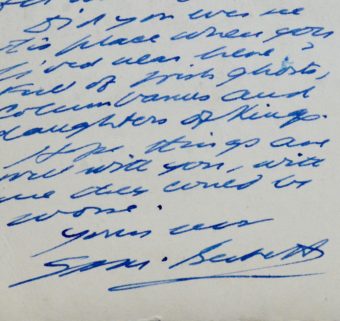 Did you know
this place when you
lived near here?
Full of Irish ghosts,
Columbanus and
daughters of Kings.
Hope things are
well with you, with
me they could be
worse.
Yours ever
Sam. Beckett